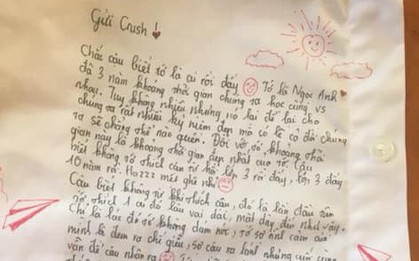 Gửi Crush !
Chắc cậu biết tớ là ai rồi đấy Tớ là Ngọc Anh
đã 3 năm khoảng thời gian chúng ta học cùng vs
nhau. Tuy không nhiều nhưng nó lại để lại cho
chúng ta rất nhiều kỷ niệm đẹp mà có lẽ cả đời chúng
ta sẽ chẳng thể nào quên. Đối với tớ khoảng thời
gian này là khoảng thời gian đẹp nhất của tớ. Cậu
biết không tớ thích cậu từ hồi lớp 3 rồi đấy, lớp 3 đấy
10 năm rồi. Hazzz mới ghê nhỉ
Cậu biết không từ khi thích cậu, đó là lần đầu tiên
tớ thích 1 ai đó lâu vai dai, mất dạy đến như vậy.
Chỉ là lúc đó tớ không dám nói, tớ sợ tình cảm của
mình bị đem ra chỉ giễu, sợ cậu xa lánh nhưng cuối cùng
vẫn để cậu nhận ra